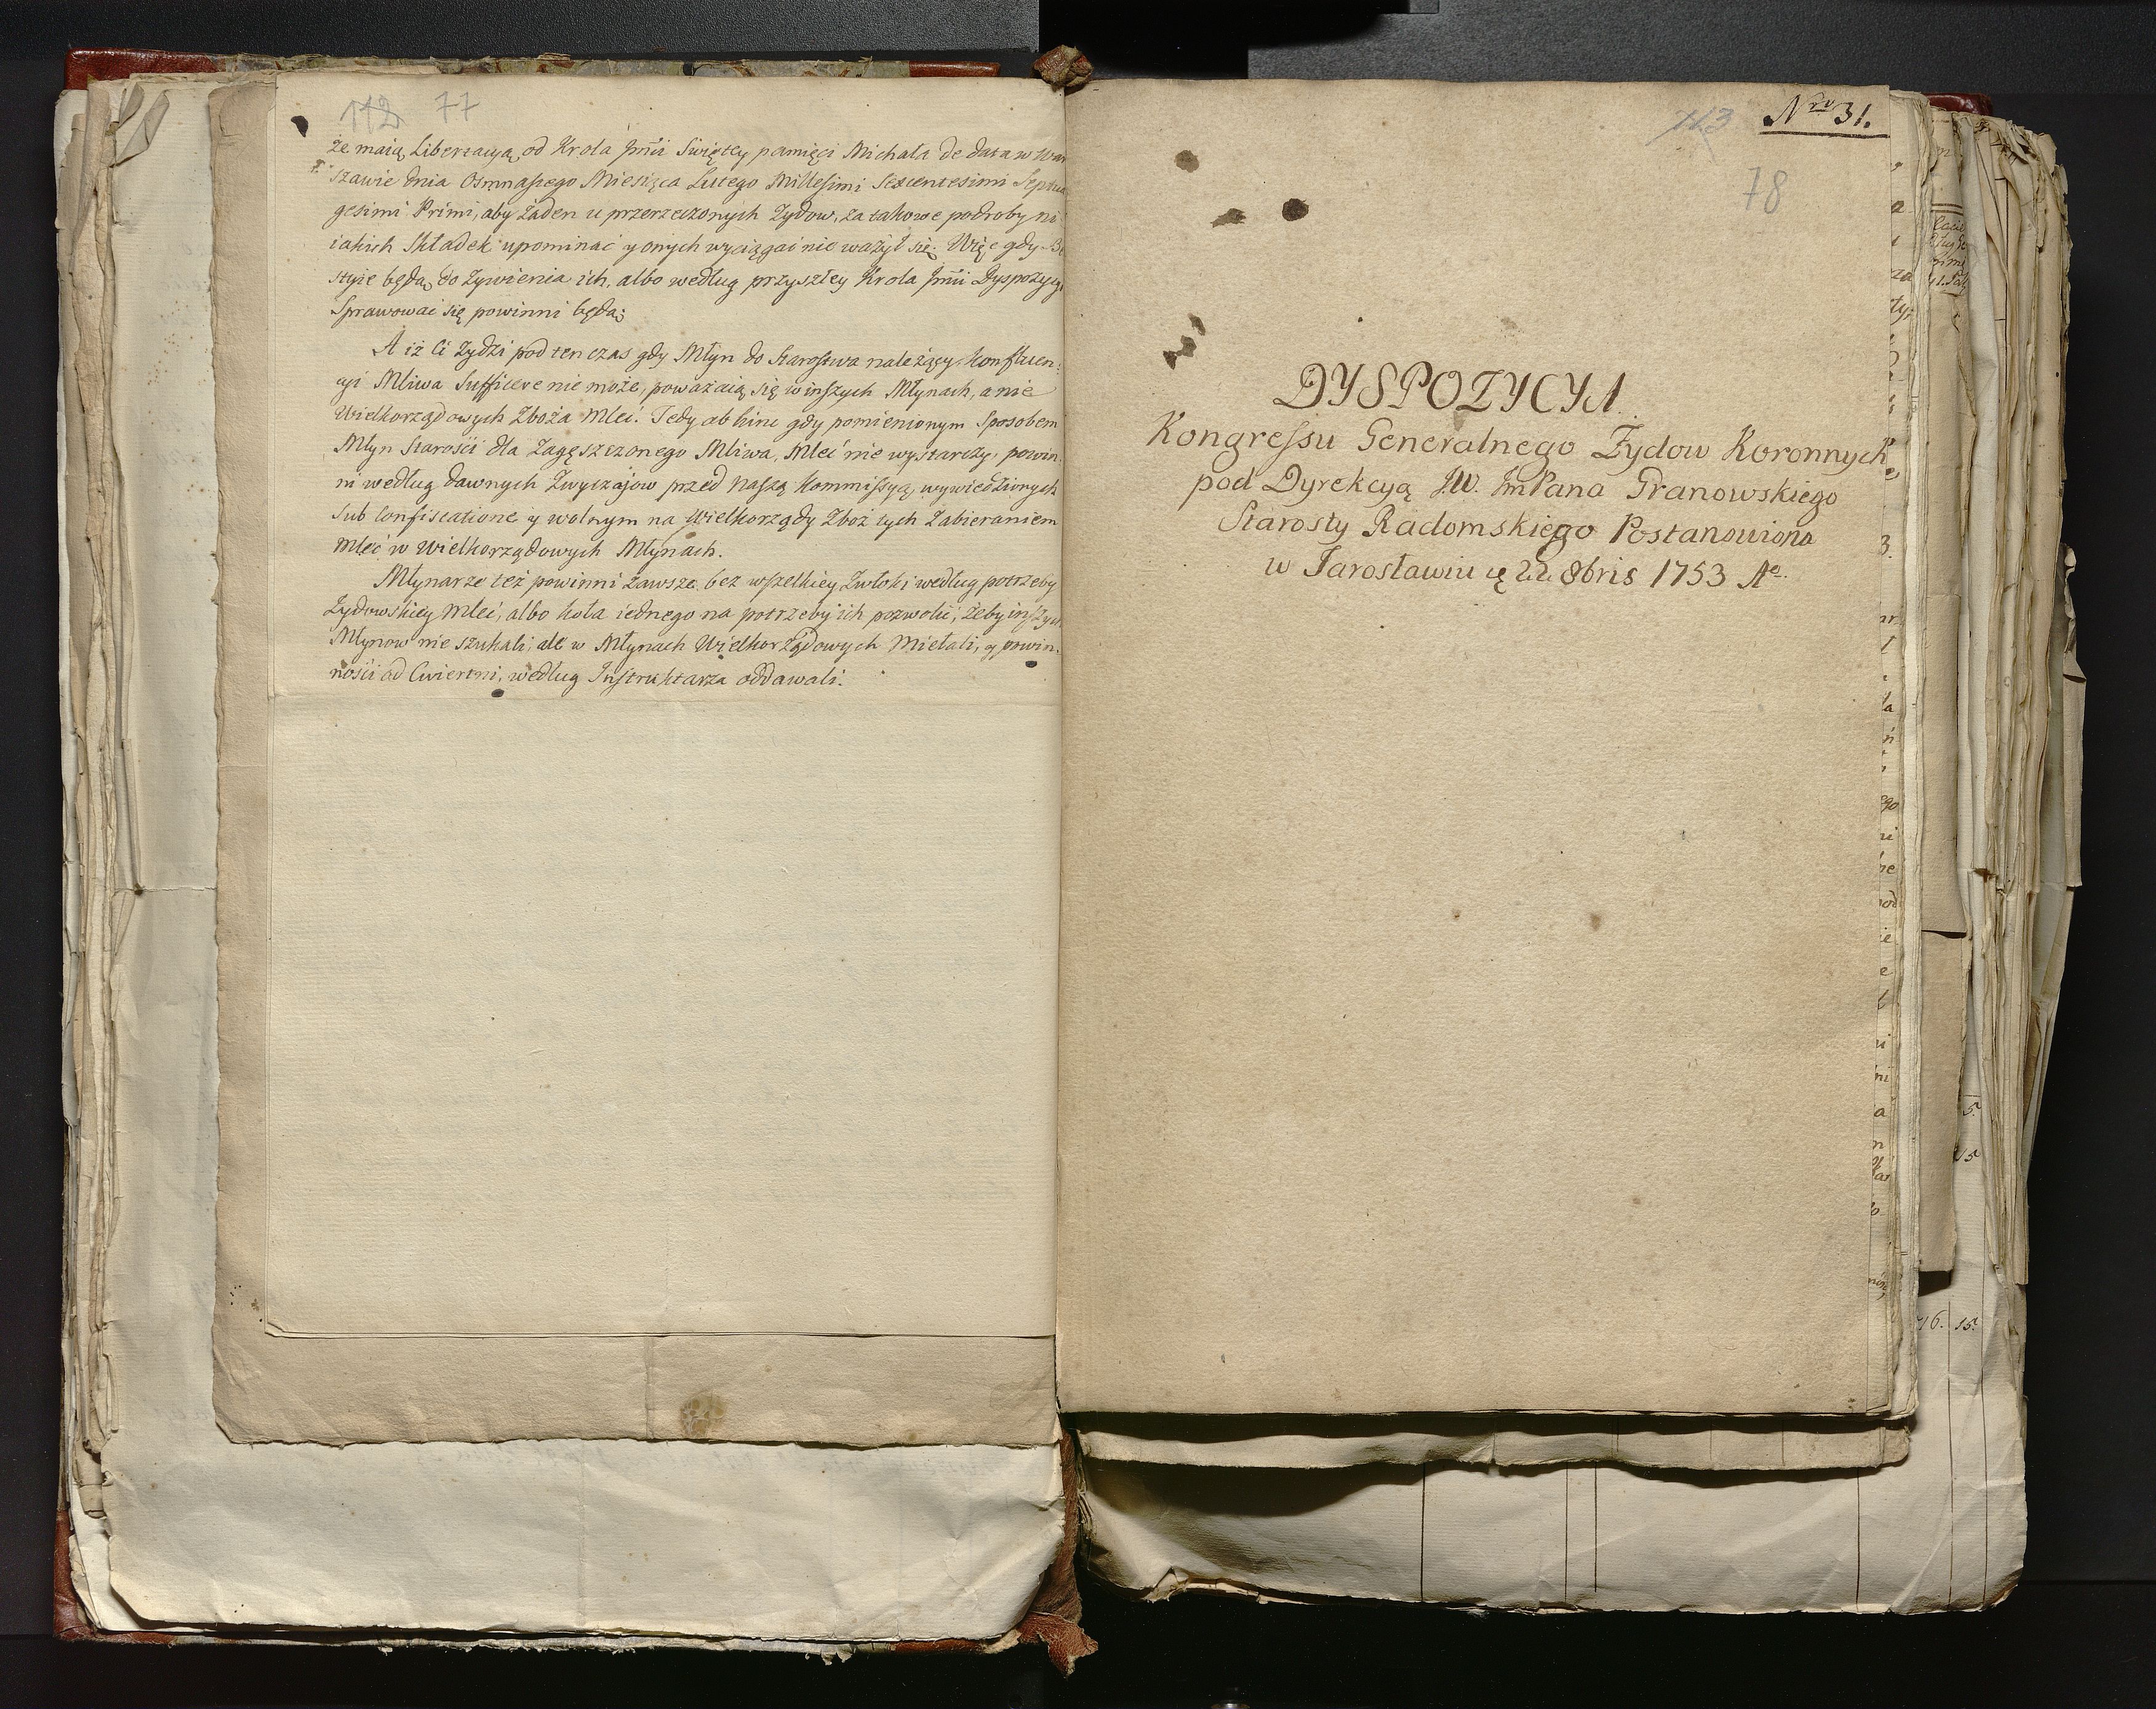 112 77
że maią Libertacyą od Krola Jmći Swiętey pamięci Michała de data w War
szawie dnia Osmnastego Miesiąca Lutego Millesimi Sexcentesimi Septua
gesimi Primi, aby żaden u przerzeczonych Zydow, za takowe podroby ni
iakich Składek upominać y onych wyciągać nie ważył się; Więc gdy Be
styie będą do żywienia ich, albo według przyszłey Krola Jmći Dyspozycyi
Sprawować się powinni będą;
A iż Ci Zydzi pod ten czas gdy Młyn do Starostwa należący, Konfluen:
cyi Mliwa Sufficere nie może, poważaią się w inszych Młynach, a nie
Wielkorządowych Zboża Mleć. Tedy ab hinc gdy pomienionym Sposobem
Młyn Starości dla Zagęszczonego Mliwa, Mleć nie wystarczy, powin:
ni według dawnych Zwyczajow przed Naszą Kommissyą, wywiedzionych
sub Confiscatione y wolnym na Wielkorządy Zboż tych Zabieraniem
Mleć w Wielkorządowych Młynach.
Młynarze też powinni zawsze bez wszelkiey Zwłoki według potrzeby
Zydowskiey Mleć, albo koła iednego na potrzeby ich pozwolić, żeby inszych
Młynow nie szukali, ale w Młynach Wielkorządowych Mielali, y powin:
ności od Cwiertni, według Instruktarza oddawali.
113 Nro 31.
78
DYSPOZYCYA
Kongressu Generalnego Zydow Koronnych
pod Dyrekcyą J.W. ImPana Granowskiego
Starosty Radomskiego Postanowiona
w Jarosławiu 22 8bris 1753 Ao.